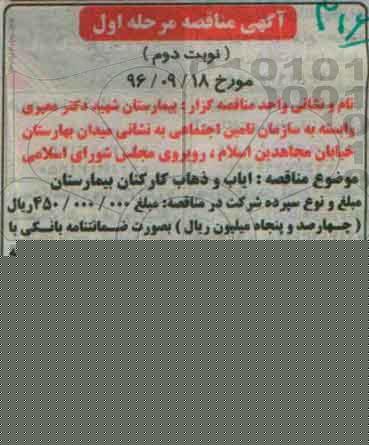 آگهی مناقصه مرحله اول
( نوبت دوم )
مورخ ۹۶/۰۹/۱۸
نام و نشانی واحد مناقصه گزار : بیمارستان شهید دکتر معیری
وابسته به سازمان تامین اجتماعی به نشانی میدان بهارستان
خیابان مجاهدین اسلام ، روبروی مجلس شورای اسلامی
موضوع مناقصه : ایاب و ذهاب کارکنان بیمارستان
مبلغ و نوع سپرده شرکت در مناقصه: مبلغ ۴۵۰/۰۰۰/۰۰۰ریال
( چهارصد و پنجاه میلیون ریال ) بصورت ضمانتنامه بانکی یا